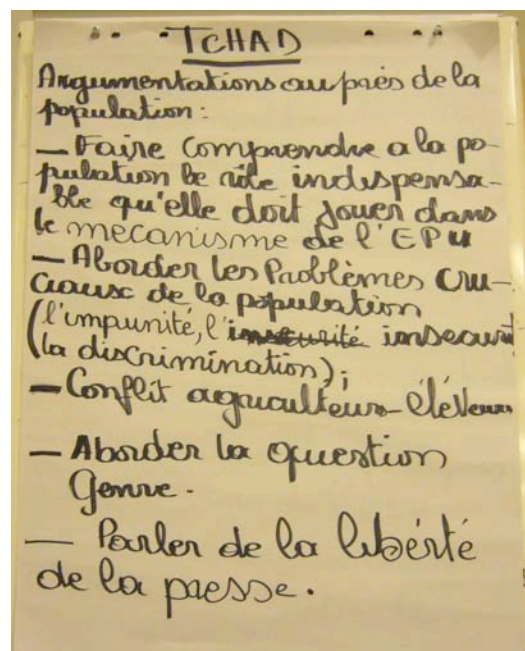 TCHAD
Argumentations auprès de la
population:
— Faire comprendre a la po-
pulation le rôle indispensa-
ble qu'elle doit jouer dans
le mecanisme de l'EPU
— Aborder les Problèmes cru-
ciaux de la population
(l'impunité, l'insecurité insecurit
(la discrimination);
— Conflit agriculteurs-éléveurs
— Aborder la question
Genre.
— Parler de la libérté
de la presse.